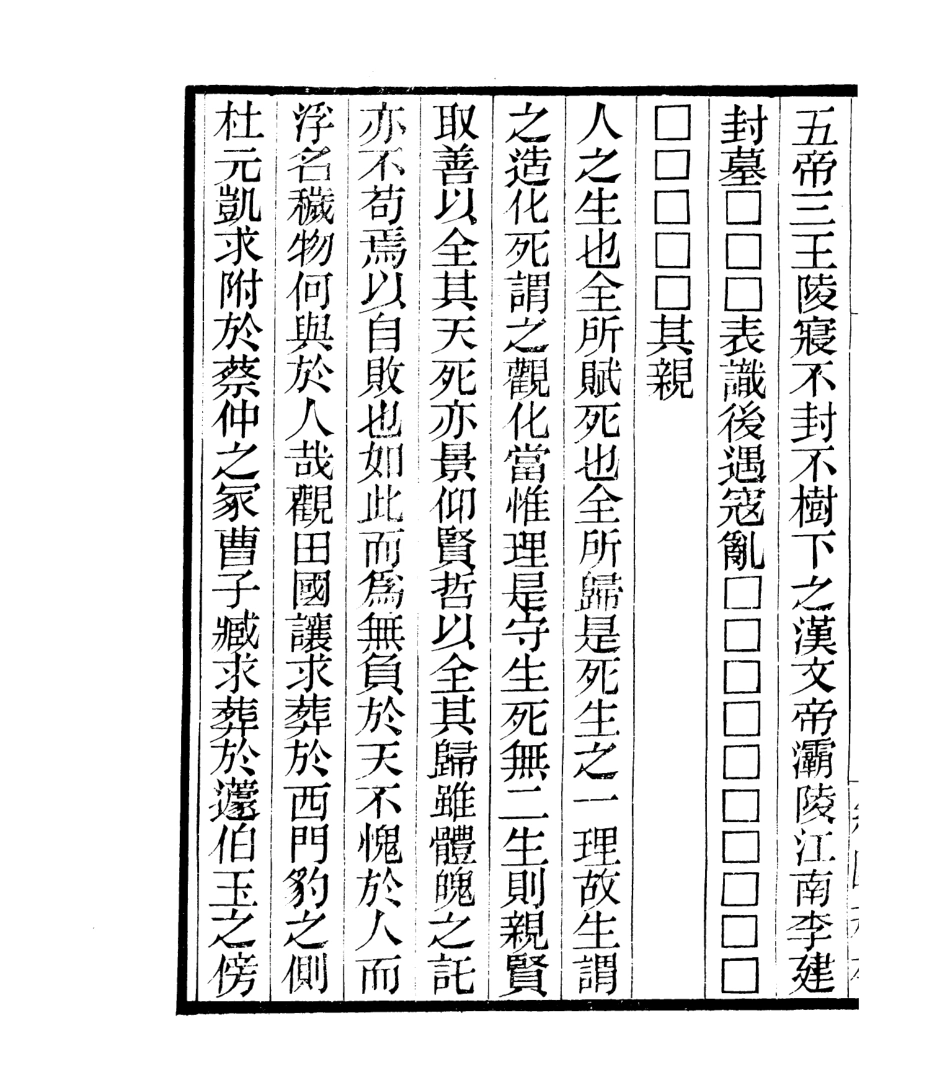 五帝三王陵寢不封不樹下之漢文帝灞陵江南李建
封墓□□□表識後遇寇亂□□□□□□□□□□
□□□□□其親
人之生也全所賦死也全所歸是死生之一理故生謂
之造化死謂之觀化當惟理是守生死無二生則親賢
取善以全其天死亦景仰賢哲以全其歸雖體魄之託
亦不苟焉以自敗也如此而爲無負於天不愧於人而
浮名穢物何與於人哉觀田國讓求葬於西門豹之側
杜元凱求附於蔡仲之冢曹子臧求葬於蘧伯玉之傍